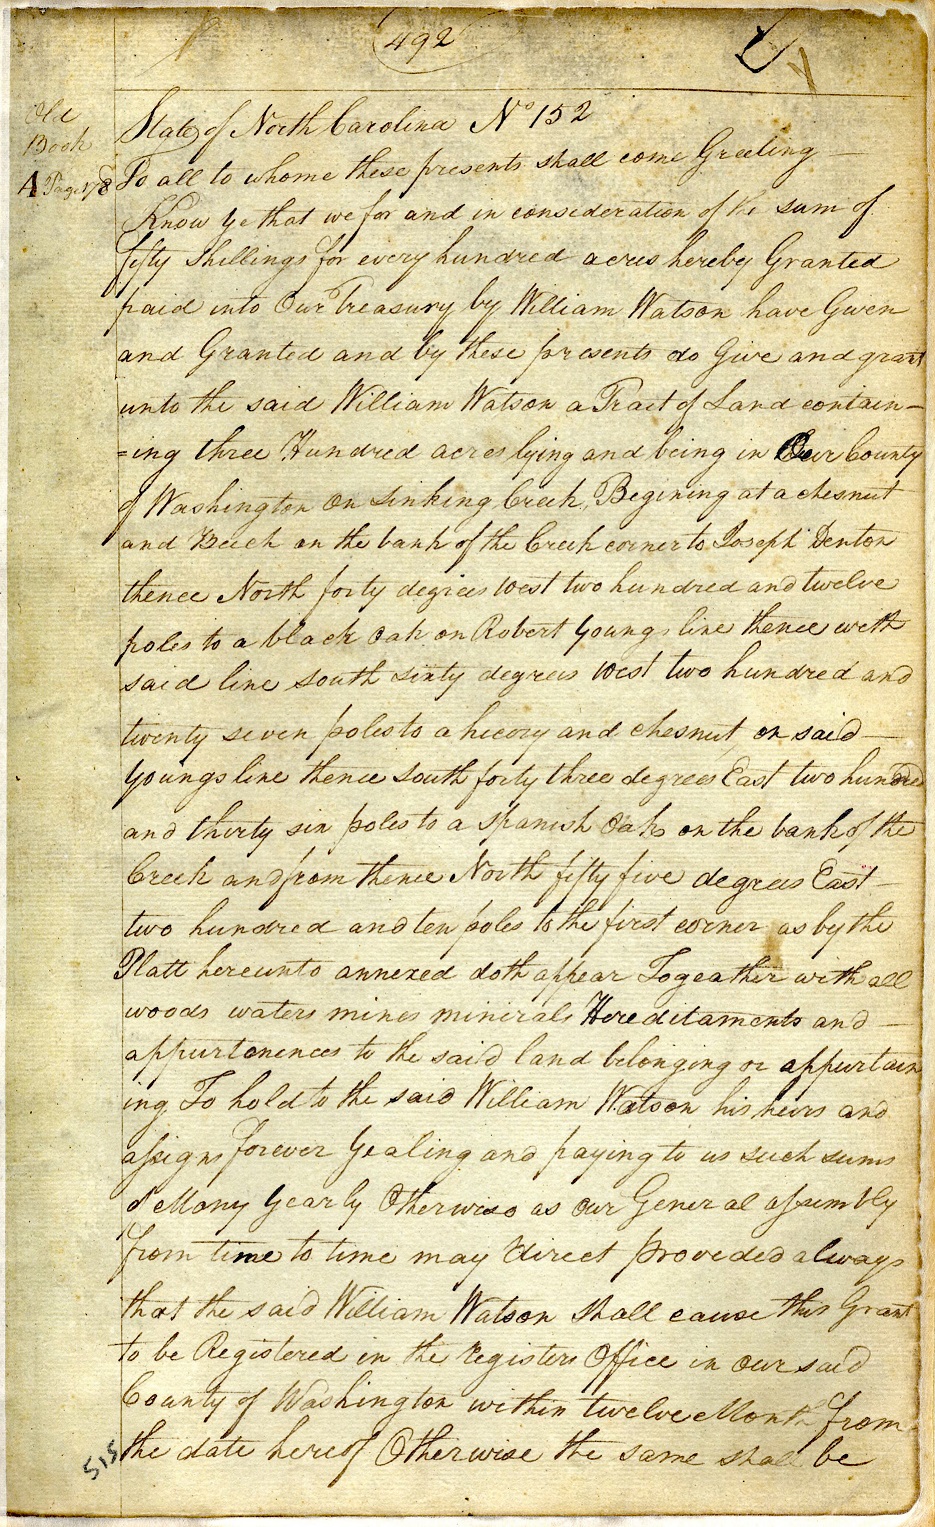 492
Old
Book
A Page 178
State of North Carolina No 152
To all to whome these presents shall come Greeting
Know ye that we for and in consideration of the sum of
fifty Shillings for every hundred acres hereby Granted
paid into Our Treasury by William Watson have Given
and Granted and by these presents do Give and grant
unto the said William Watson a Tract of Land contain-
=ing three Hundred acres lying and being in Our County
of Washington on Sinking Creek, Begining at a chesnut
and Beech on the bank of the Creek corner to Joseph Denton
thence North forty degrees west two hundred and twelve
poles to a black oak on Robert Youngs line thence with
said line south sixty degrees west two hundred and
twenty seven poles to a hicory and chesnut on said
Youngs line thence south forty three degrees East two hundred
and thirty six poles to a spanish Oak on the bank of the
Creek and from thence North fifty five degrees East
two hundred and ten poles to the first corner as by the
Platt hereunto annexed doth appear Togeather with all
woods waters mines minerals Hereditaments and
appurtenences to the said land belonging or appurtain
ing To hold to the said William Watson his heirs and
assigns forever Yealing and paying to us such sums
of Mony Yearly Otherwise as our General assembly
from time to time may direct proveded always
that the said William Watson shall cause this Grant
to be Registered in the registers Office in our said
County of Washington within twelve Month from
the date hereof Otherwise the same shall be
515